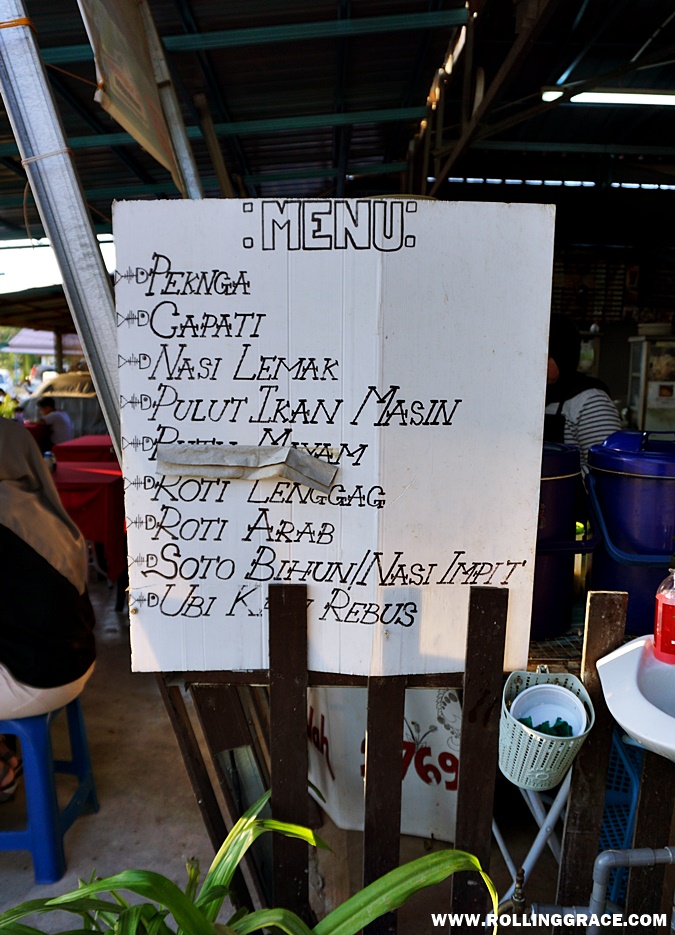 :MENU:
PEKNGA
CAPATI
NASI LEMAK
PULUT IKAN MASIN
MAYAM
ROTI LENGGAG
ROTI ARAB
SOTO BIHUN/NASI IMPIT
UBI REBUS
769
WWW.ROLLINGGRACE.COM